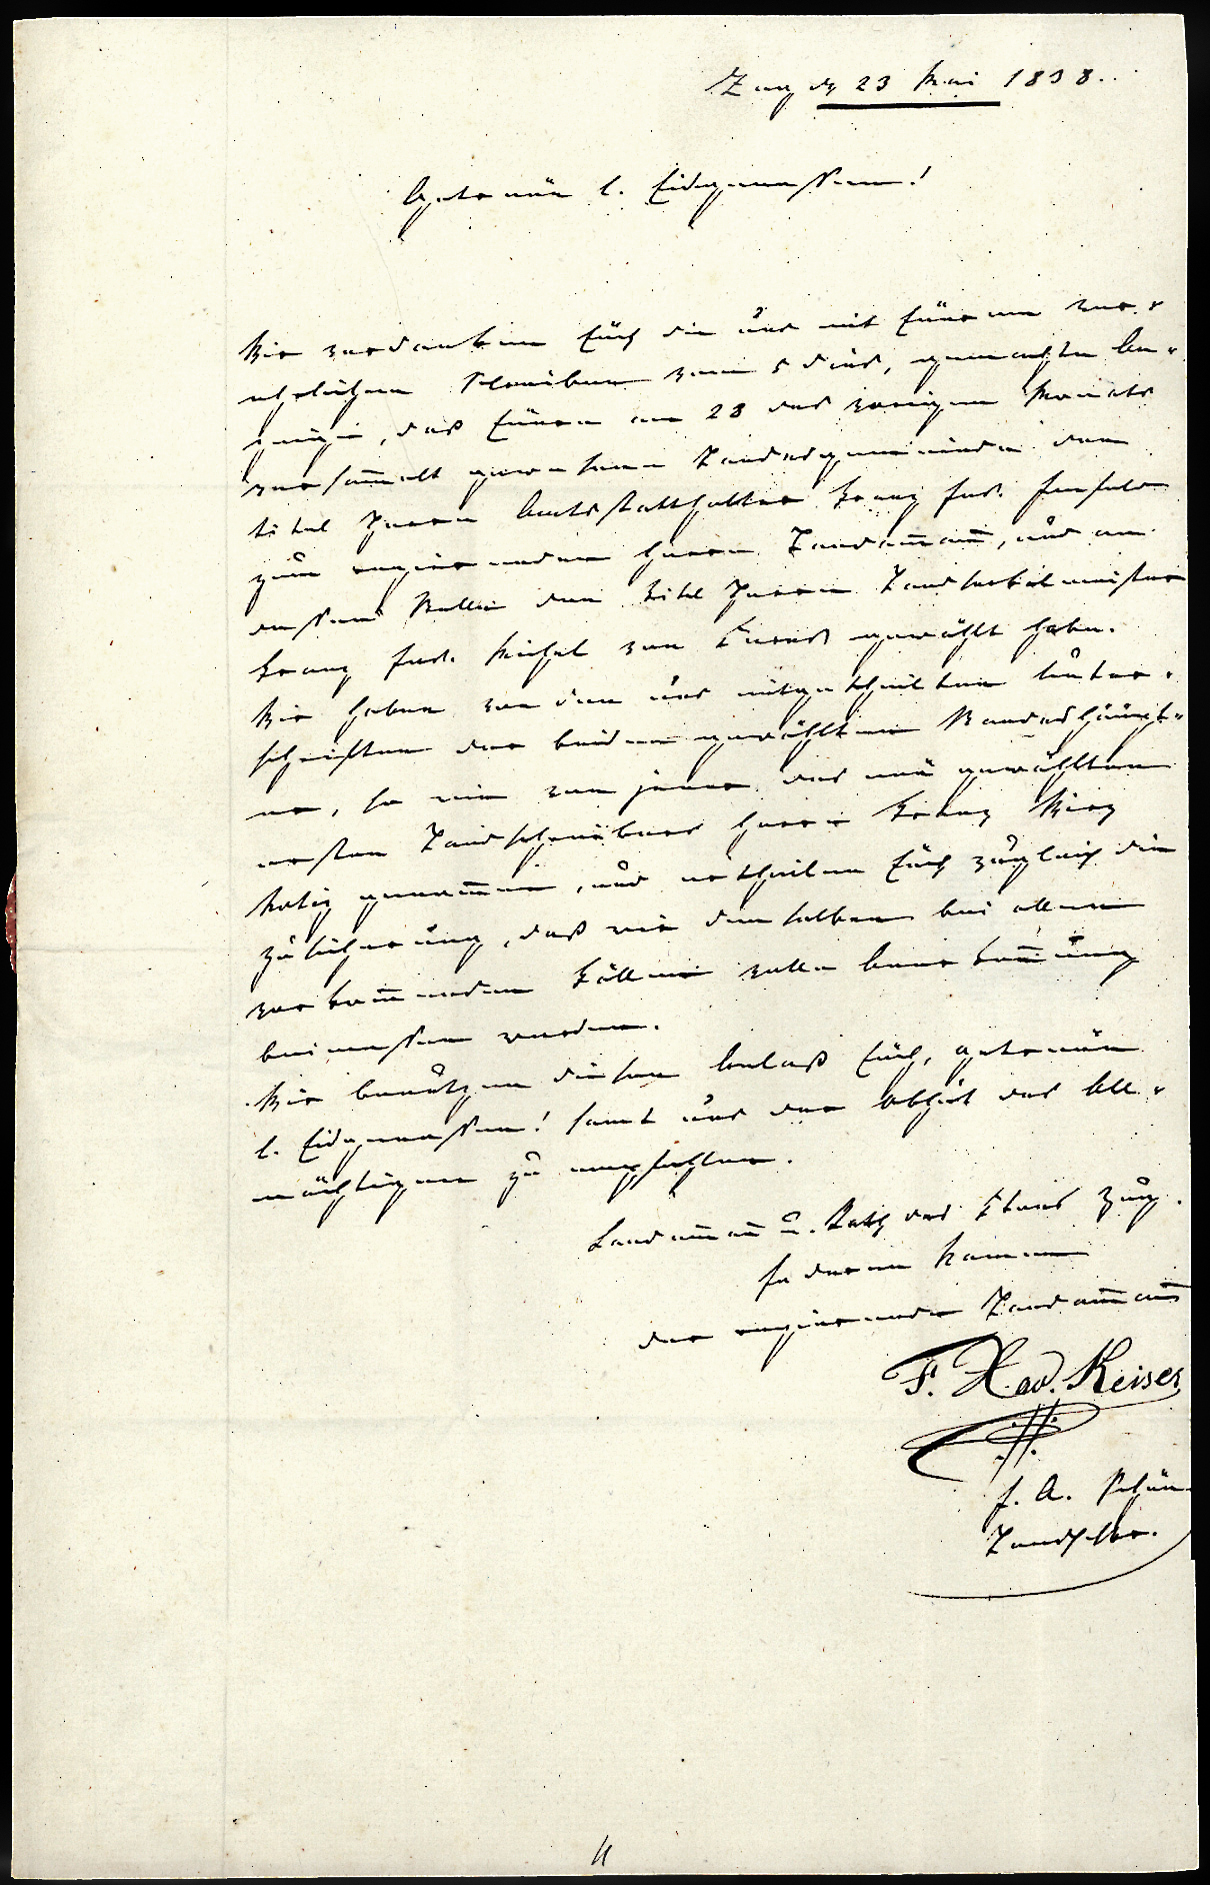 Zug dq 23 Mai 1838.
Getreue l. Eidgenossen!
Wir verdanken Euch die uns mit Euerem ver¬
ehrlichen Schreiben vom 5 dies, gemachte An¬
zeige, daß Euere am 28 des vorigen Monats
versam̅elt gewesene Landesgemeinde den
titel Herrn Amtsstatthalter Franz Jos.
zum regierenden Herrn Landam̅an̅, und an
dessen Stelle den Titel Herrn Landseckelmeister
Franz Jos. Michel von Kerns gewählt habe.
Wir haben von den uns mitgetheilten Unter¬
schriften der beiden gewählten Standeshäupt¬
er, so wie von jener des neu gewählten
ersten Landschreibers Herrn Franz Wirz
Notiz genom̅en, und ertheilen Euch zugleich die
Zusicherung, daß wir denselben bei allen
vorkom̅enden Fällen volle Anerkennung
beimessen werden.
Wir benutzen diesen Anlaß Euch, getreue
l. Eidgenossen! samt uns der Obhut des All¬
mächtigen zu empfehlen.
Landam̅an̅ u. Rath des Stands Zug.
In deren Namen
der regierende Landam̅an̅
F. Xav. Keiser
J. A. Schön
Landschbr.